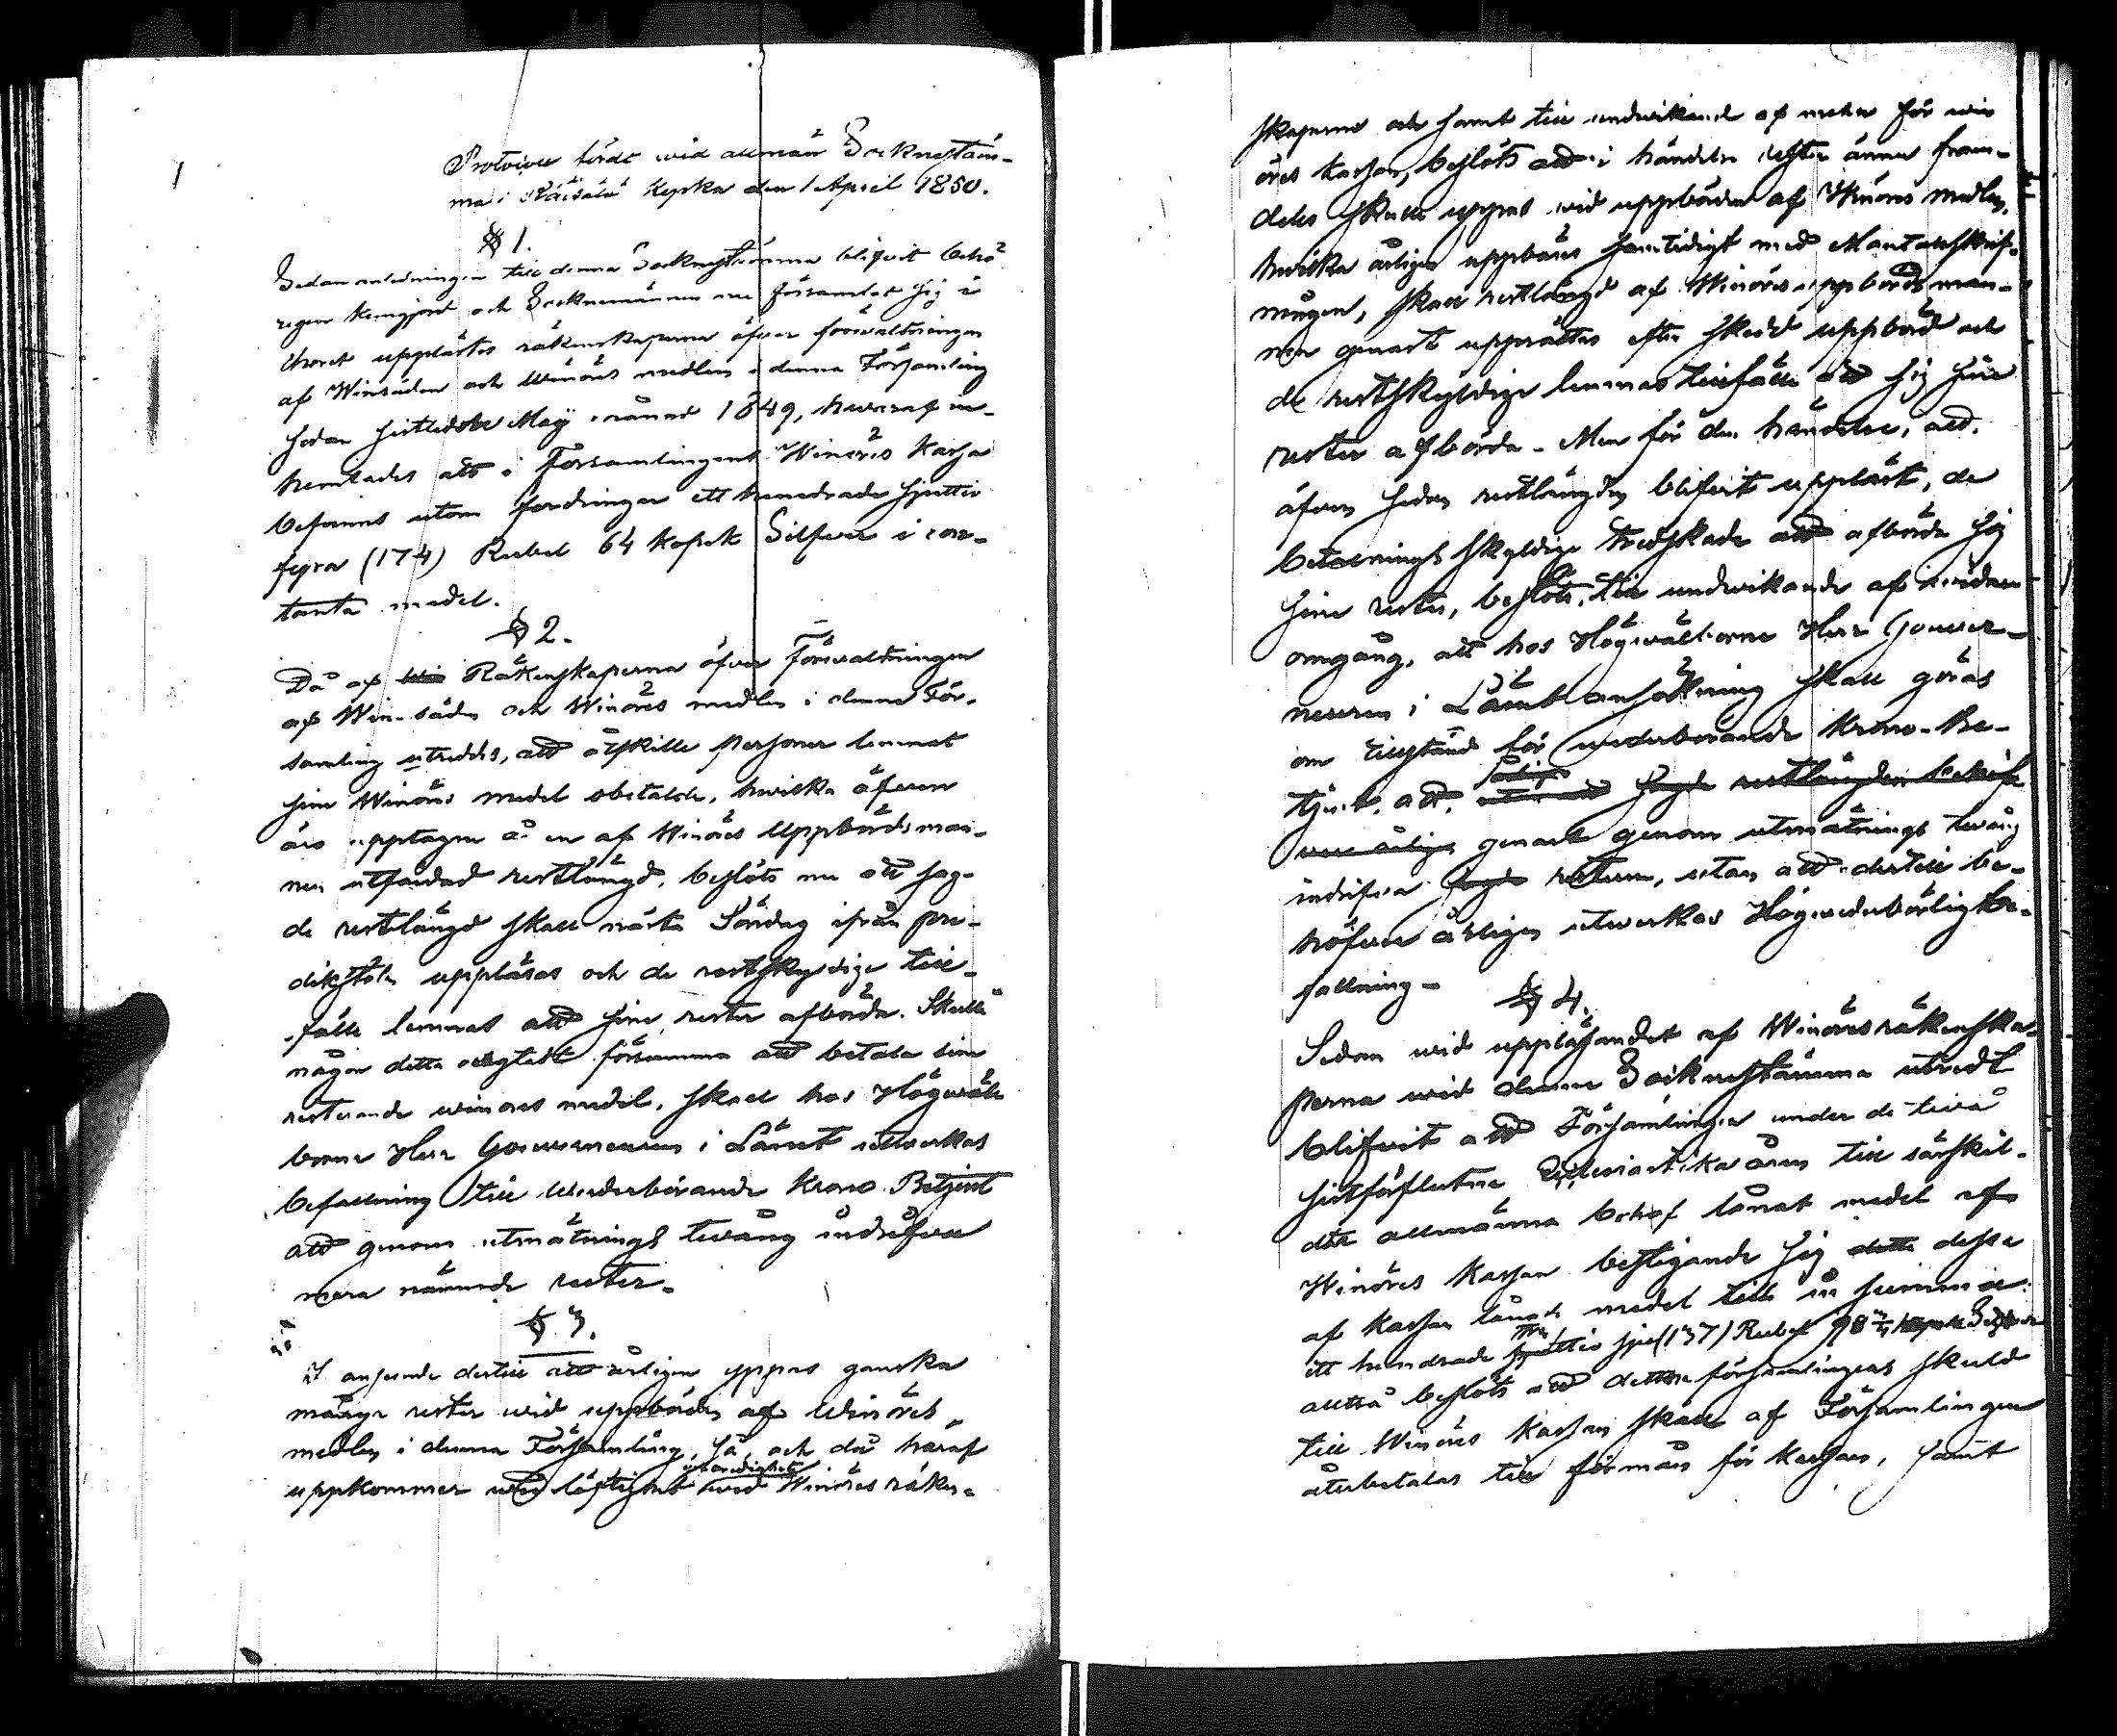 Protocoll fördt wid allmän Socknestäm-
ma i Räisälä Kyrka den 1 April 1850.
§ 1.
Sedan anledningen till denna Socknestämma blifvit behö-
rigen kungjord och Socknemännen nu församlat sig i
Choret upplästes räkenskaperna öfver förvaltningen
af Winsäden och Winöres medlen i denna Församling
sedan sistledne Maij månad 1849, hvaraf in-
hemtades att i Församlingens Winöres Kassa
befanns utom fordringar ett hundrade sjuttio
fyra (174) Rubel 64 kopek Silfver i con-
tanta medel.
§ 2.
Då af Räkenskaperna öfver förvaltningen
af Win-säden och Winöres medlen i denna För-
samling utreddes, att åtskille personer lemnat
sine Winöres medel obetalde, hvilka äfven
äro upptagne å en af Winöres Uppbördsman-
nen utfärdad restlängd, beslöts nu att sag-
de restlängd skall nästa Söndag ifrån pre-
dikstolen uppläsas och de restskyldige till-
fälle lemnas att sine rester afbörda. Skulle
någon detta oagtadt försumma att betala sine
resterande winöres medel, skall hos Högwäl-
borne Herr Gouverneuren i Länet utverkas
befallning till wederbörande Krono Betjent
att genom utmätnings tvång indrifva
mera nämnde rester.
§ 3.
I anseende dertill att årligen yppas ganska
många rester wid uppbörden af Winöres
medlen i denna Församling, så och då häraf
uppkommer widlöftighet wid Winöres räken-
skaperne och samt till undvikande af rester för win
öres kassan, beslöts att i händelse rester ännu fram-
deles skulle yppas wid uppbörden af Winöres medlen,
hvilka årligen uppbäres samtidigt med Mantalsskrif-
ningen, skall restlängd af Winöres uppbördsman-
nen genast upprättas efter skedd uppbörd och
de restskyldige lemnas tillfälle att sig sine
rester afbörda. Men för den händelse, att
äfven sedan restlängden blifvit uppläst, de
betalningsskyldige tredskade att afbörda sig
sine rester, beslöts, till undvikande af
omgång, att hos Högwälborne Herr Gouver-
neuren i Länet ansökning skall göras
om tillstånd för wederbörande Krono-Be-
tjent, att årligen sagde restlängden
genast genom utmätnings tvång
indrifva resterne, utan att dertill be-
höfver årligen utverkas Högvederbörlig be-
fallning.
§ 4.
Sedan wid uppläsandet af Winöres räkenska-
perna wid denna Socknestämma utredt
blifvit att Församlingen under de tvä
sistförflutne Ecclesiastika åren till särskil-
da allmänna behof lånat medel af
Winöres Kassan bestigande sig dessa
af Kassan lånade medel till en summa
ett hundrade trettio sju (137) Rubel 98 kopek Silfver
alltså beslöts att denna församlingens skuld
till Winöres Kassan skall af Församlingen
återbetalas till förmån för kassan, samt